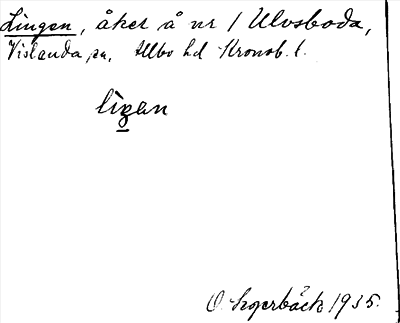 Lingen, åker å nr 1 Ulvsboda,
Vislanda sn, Allbo hd Kronob. l.
lìgan
O. Segerbäck 1935.